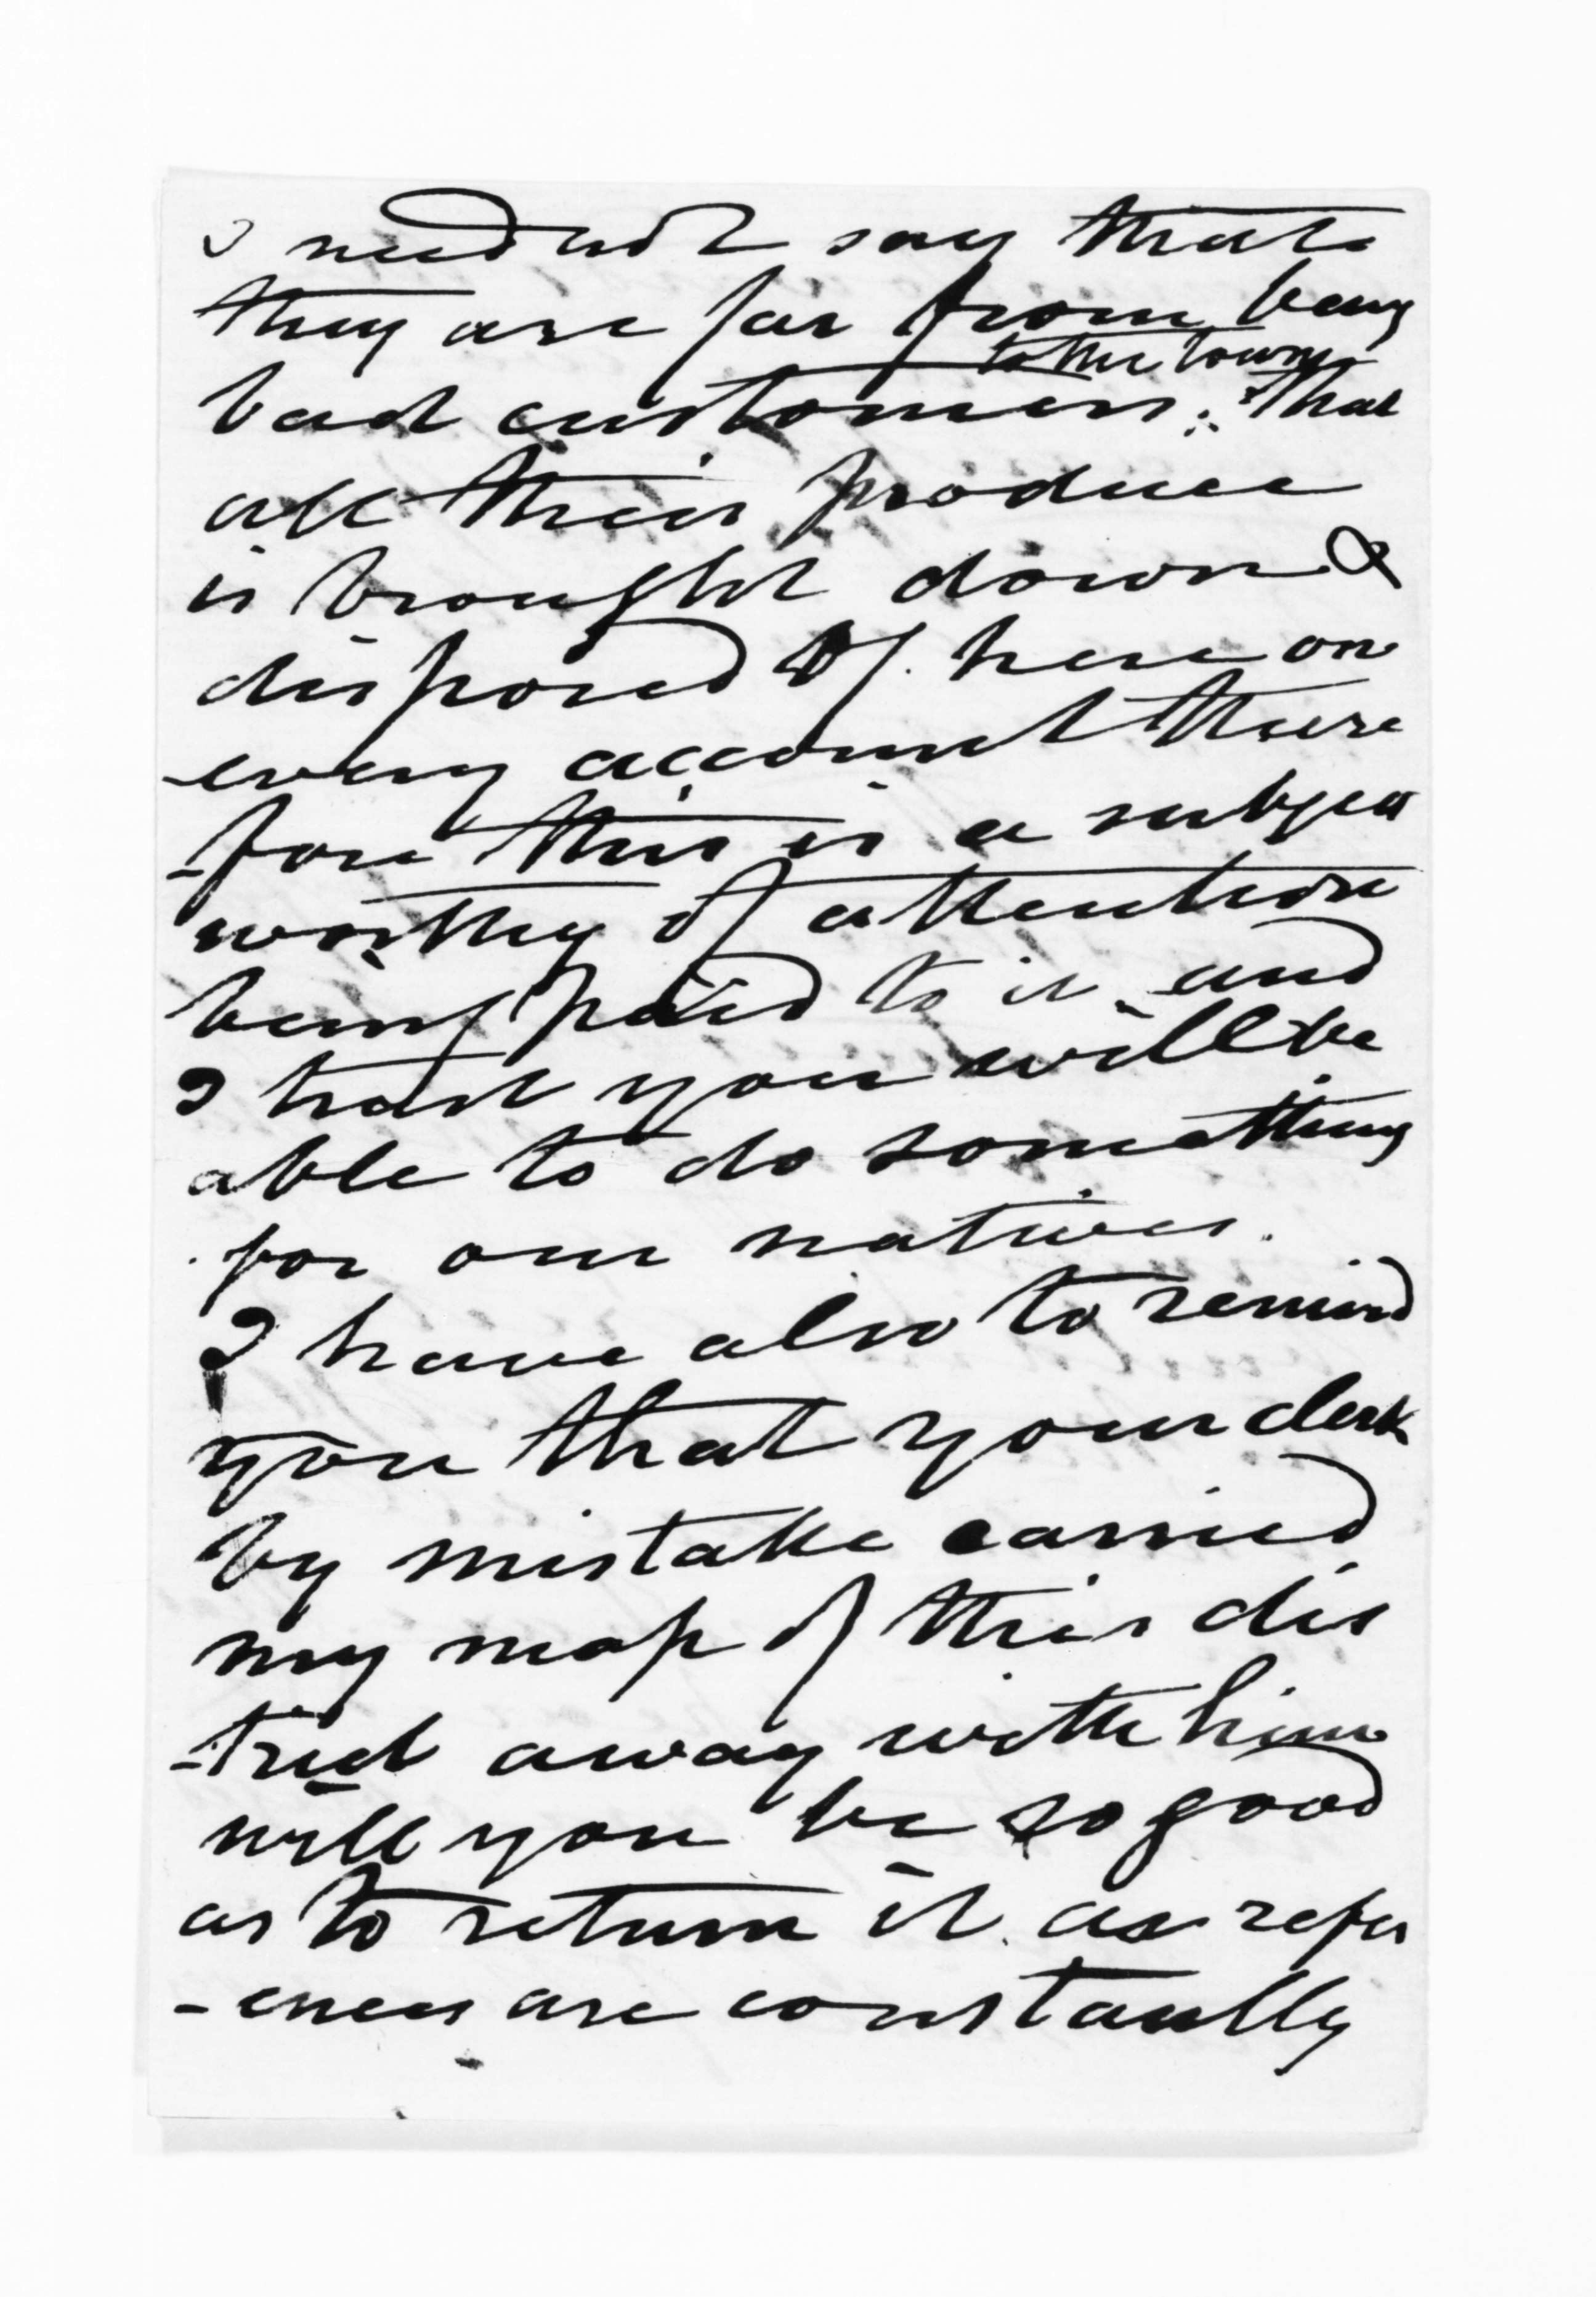 I need not say that
they are far from being
to the town
bad customers: & that
all their produce
is brought down &
disposed of here on
every account there
-fore this is a subject
worthy of attention
being paid to it and
I trust you will be
able to do something
for our natives.
I have also to remind
you that your clerk
by mistake carried
my map of this dis
-trict away with him
will you be so good
as to return it as refer
-ences are constantly